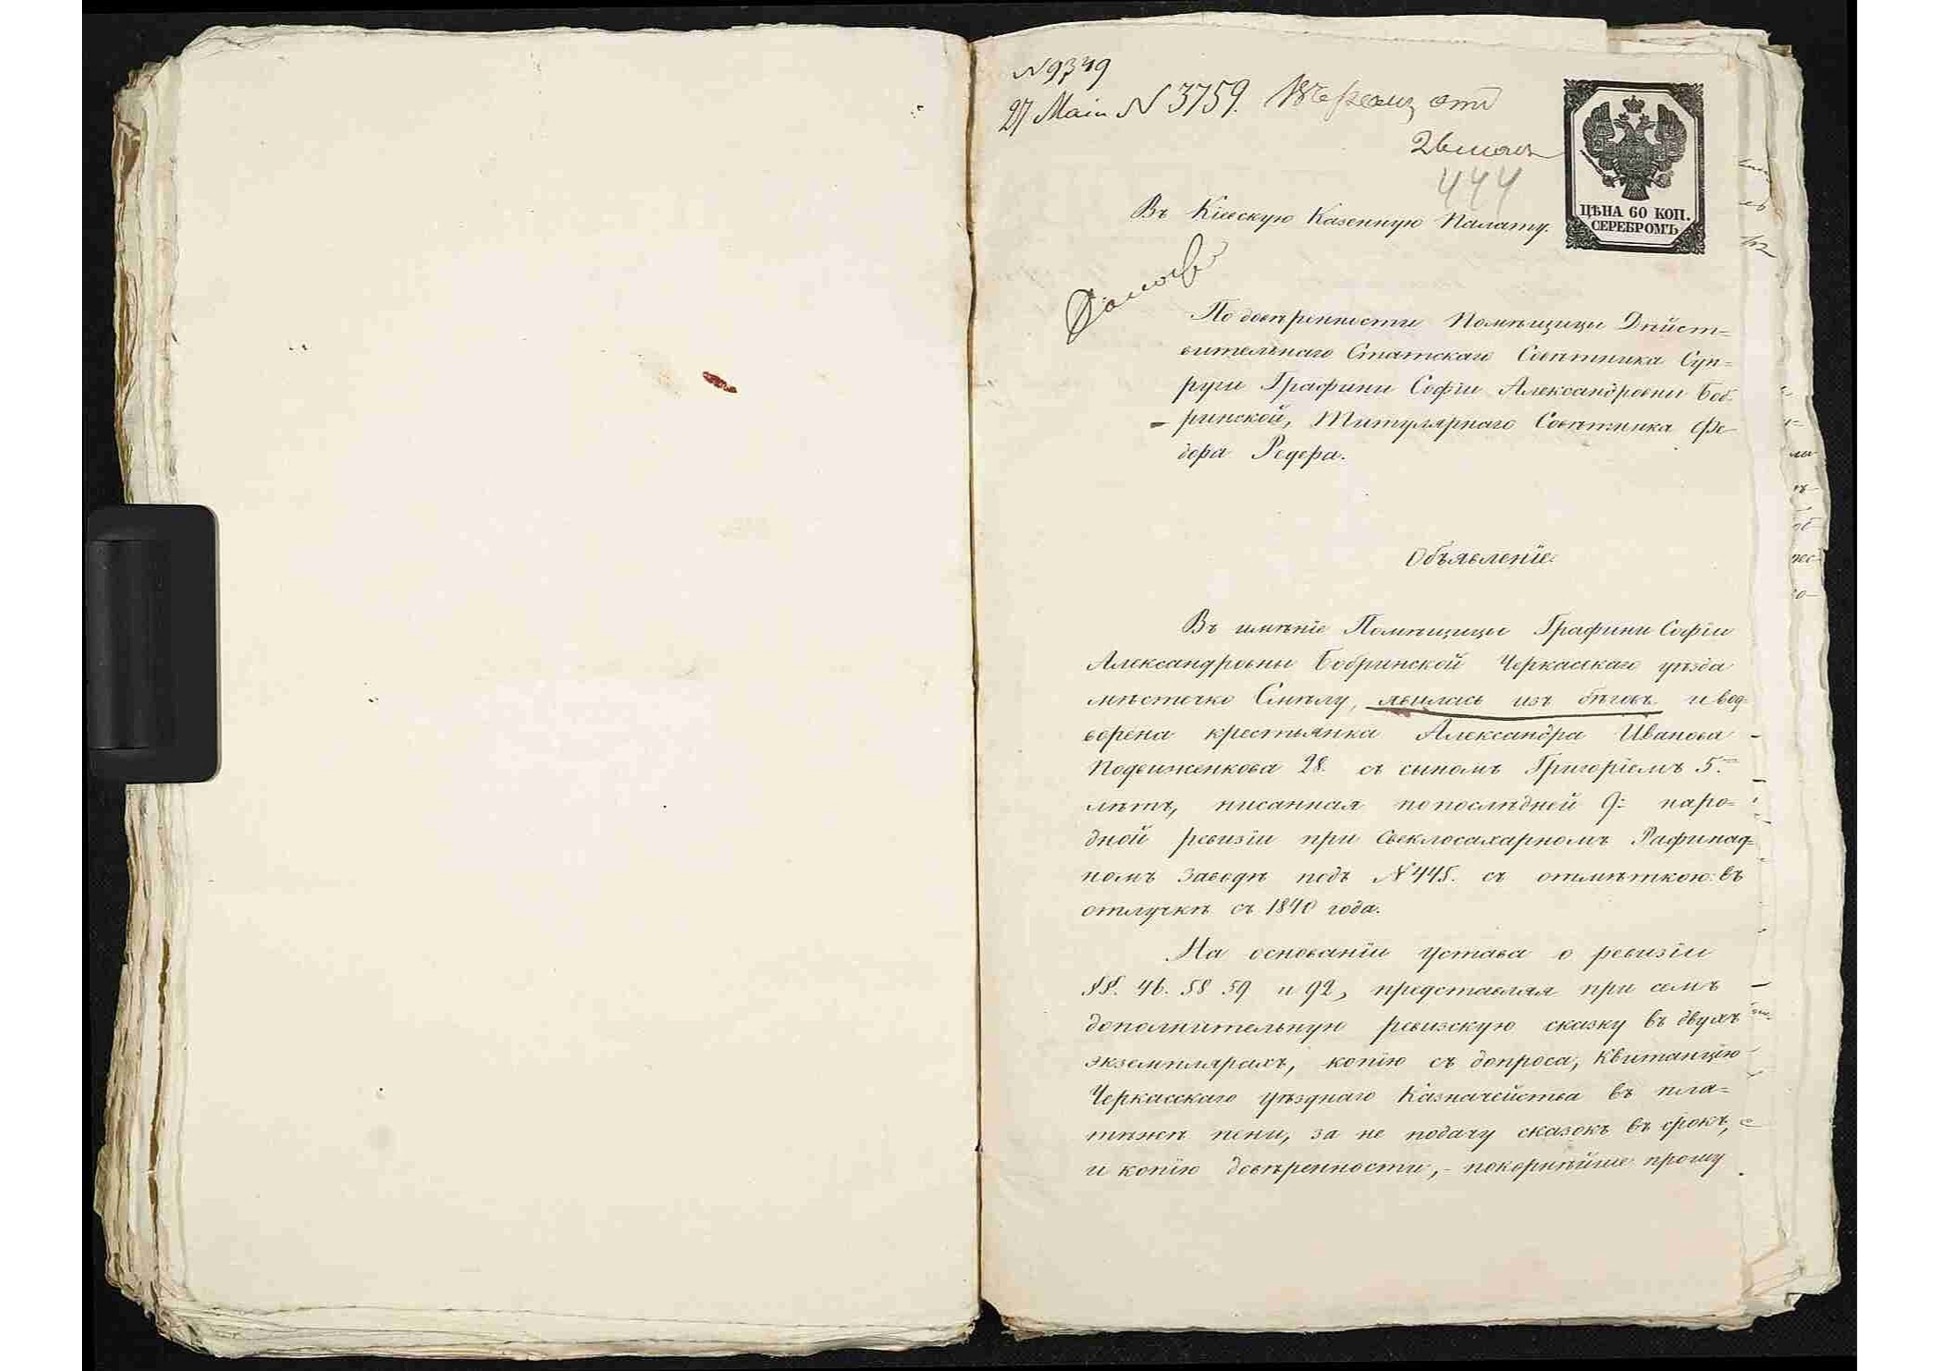 N 9349
27 Маія N 3759.
26 мая
444
ЦѢНА 60 КОП.
СЕРЕБРОМЪ
Въ Кіевскую Казенную Палату.
По довѣренности Помѣщицы Дѣйст=
вительнаго Статскаго Совѣтника Суп=
руги Графини Софіи Александровны Боб=
ринской, Титулярнаго Совѣтника Фе-
дора Редера.
Объявленіе.
Въ имѣніе Помѣщицы Графини Софіи
Александровны Бобринской Черкасскаго уѣзда
мѣстечко Смѣлу, явилась изъ бѣговъ и вод=
ворена крестьянка Александра Иванова
Подвиженкова 28. съ сыномъ Григоріемъ 5.
лѣтъ, писанная по послѣдней 9й наро=
дной ревизіи при Свеклосахарномъ Рафинад=
номъ Заводѣ подъ N 445. съ отмѣткою: въ
отлучкѣ съ 1840 года.
На основаніи устава о ревизіи
§§. 46. 58 59 и 92, представляя при семъ
дополнительную ревизскую сказку въ двухъ
экземплярахъ, копію съ допроса, Квитанцію
Черкасскаго уѣзднаго Казначейства въ пла=
тежѣ пени, за не подачу сказокъ въ срокъ,
и копію довѣренности, - покорнѣйше прошу